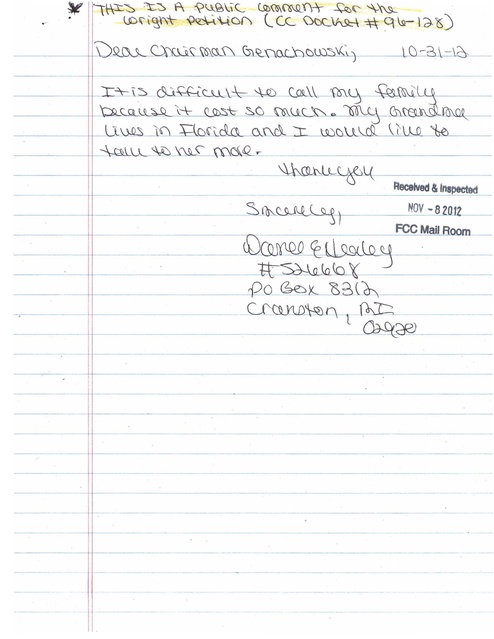 THIS IS A PUBLIC comment for the
Wright Petition (CC Docket # 96-128)
Dear Chairman Genachowski, 10-31-12
It is difficult to call my family
because it cost so much. My Grandma
lives in Florida and I would like to
talk to her more.
Thank you
Received & Inspected
NOV - 8 2012
FCC Mail Room
Sincerely,
#526668
PO Box 8312
Cranston, RI
02920